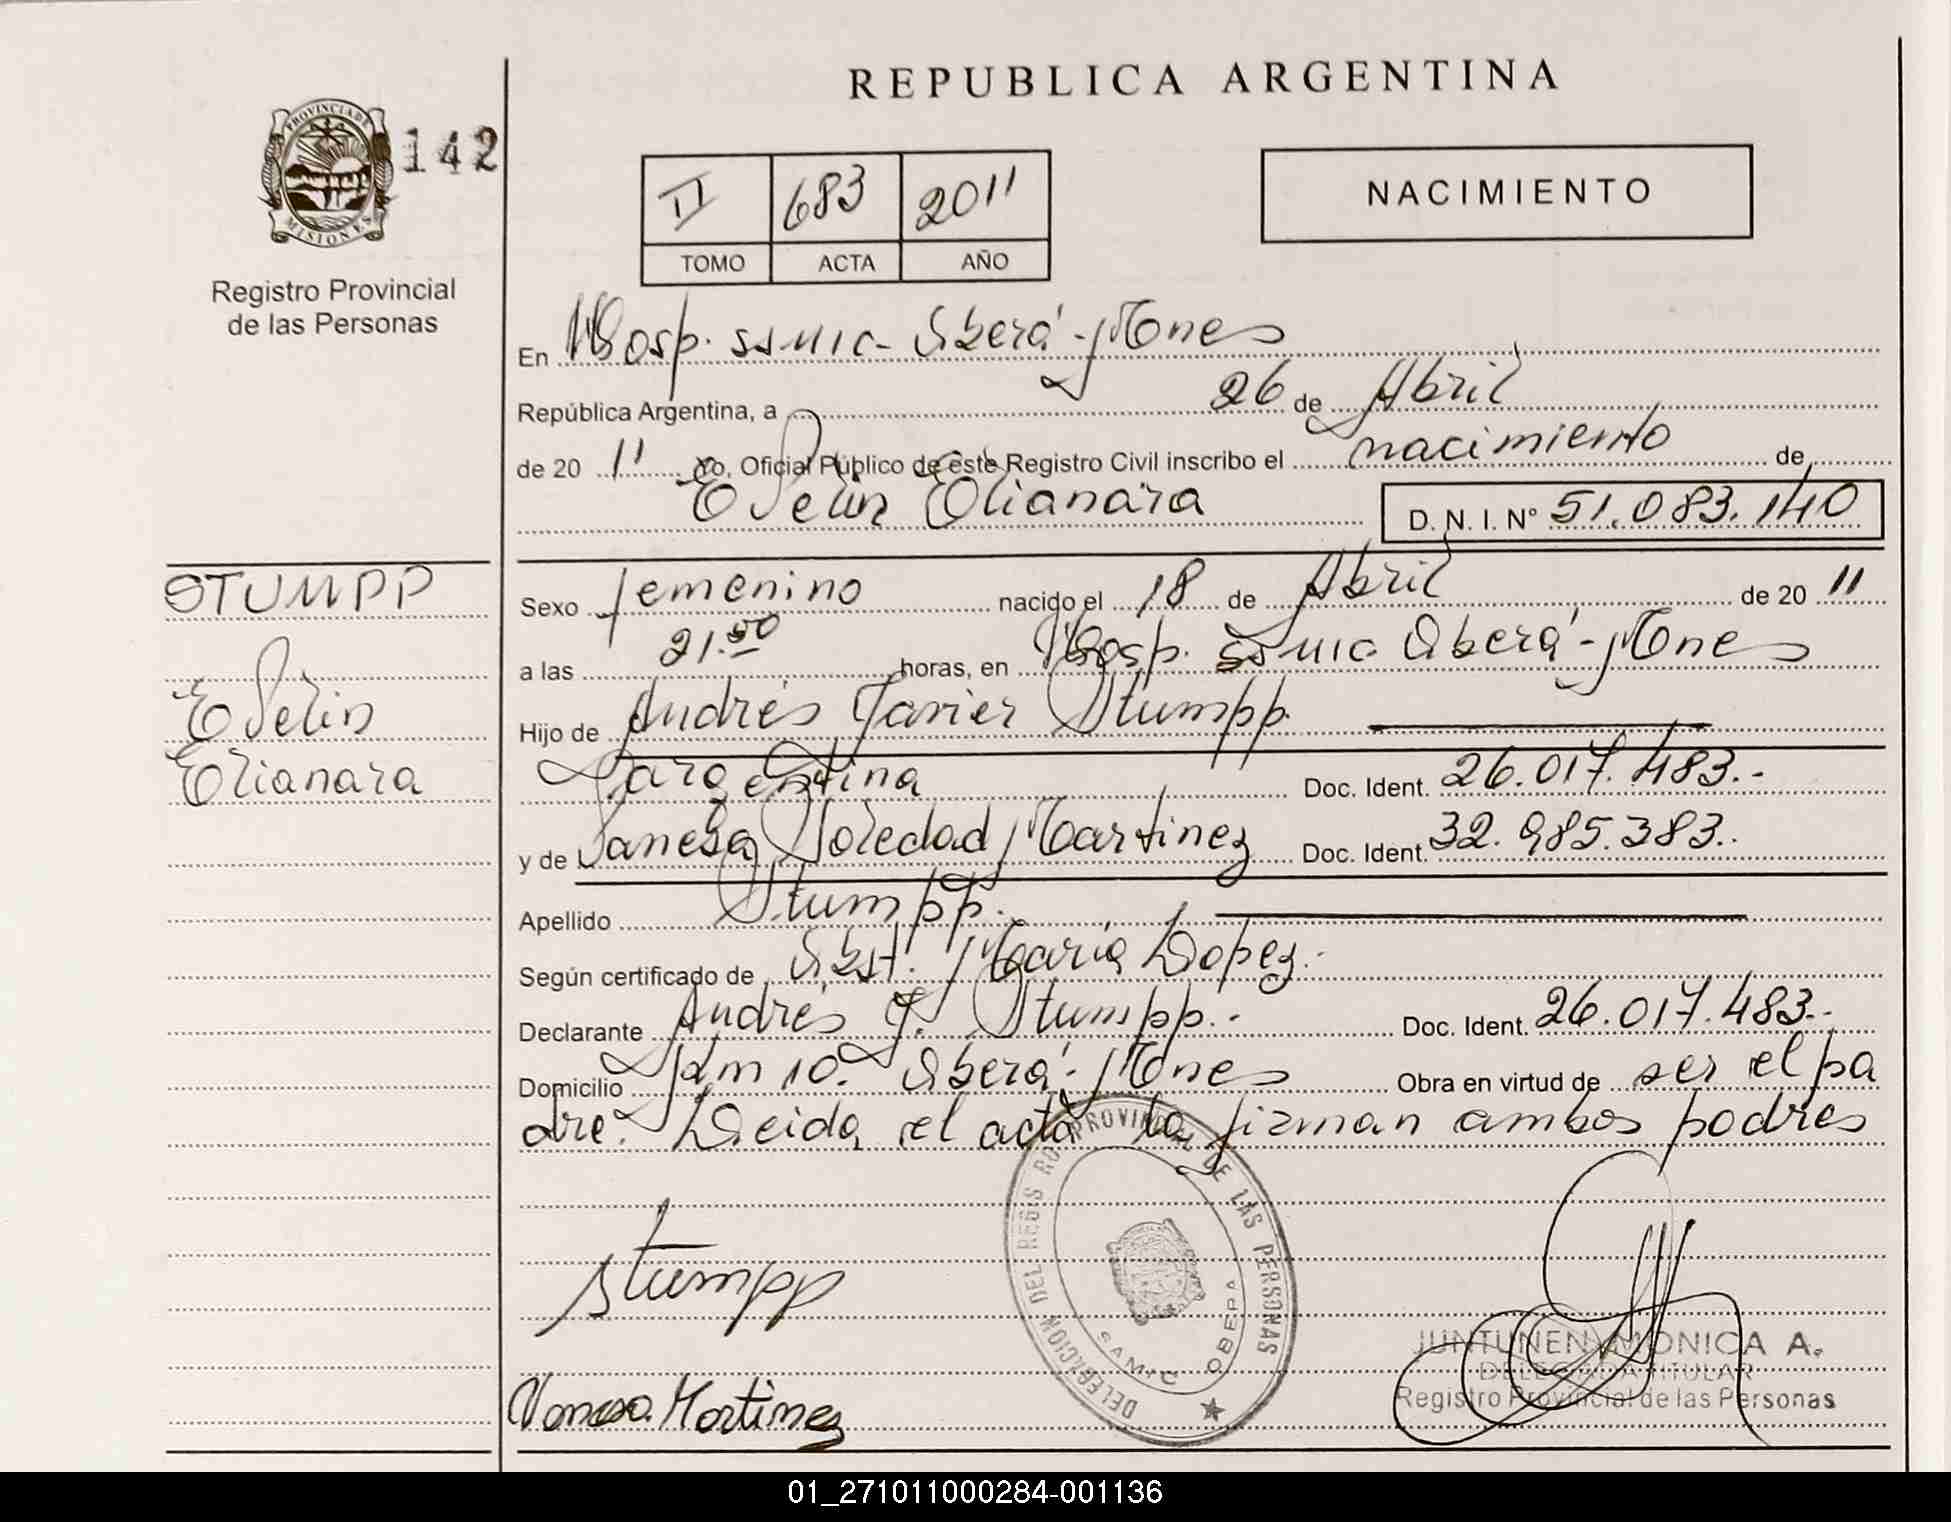 REPUBLICA ARGENTINA
PROVINCIA DE
MISIONES
142
Registro Provincial
de las Personas
II 683 2011
TOMO ACTA AÑO
NACIMIENTO
En Hosp. SSMIC - Oberá - Mones
República Argentina, a 26 de Abril
de 20 11 Yo, Oficial Público de este Registro Civil inscribo el nacimiento de
Evelin Elianara
D. N. I. N° 51.083.140
STUMPP
Evelin
Elianara
Sexo femenino nacido el 18 de Abril de 20 11
a las 21.50 horas, en Hosp. SSMIC Oberá - Mones
Hijo de Andrés Javier Stumpp.
Argentina Doc. Ident. 26.017.483.-
y de Vanesa Soledad Martinez Doc. Ident. 32.985.383.
Apellido Stumpp.
Según certificado de Obst. Maria Lopez.-
Declarante Andrés J. Stumpp.- Doc. Ident. 26.017.483.-
Domicilio Km 10. Oberá - Mones Obra en virtud de ser el pa
dre. Leida el acta la firman ambos padres
Stumpp
Vanesa Martinez
DELEGACION DEL REGISTRO PROVINCIAL DE LAS PERSONAS
SAMIC OBERA
JUNTUNEN MONICA A.
DELEGADA TITULAR
Registro Provincial de las Personas
01_271011000284-001136